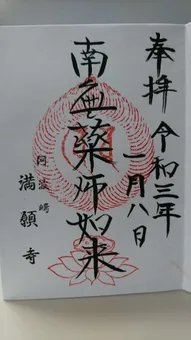 奉拝 令和三年
一月八日
南無薬師如来
阿波﨑
満願寺